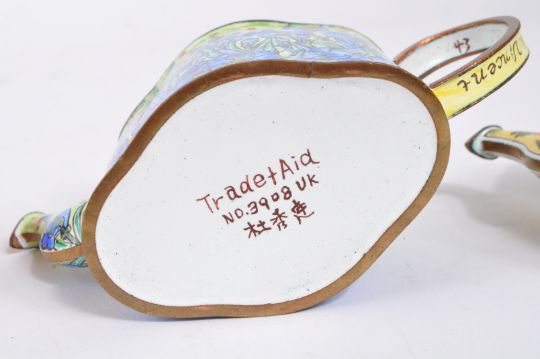 Trade+Aid
NO.3908 UK
杜秀建
43
Vincent